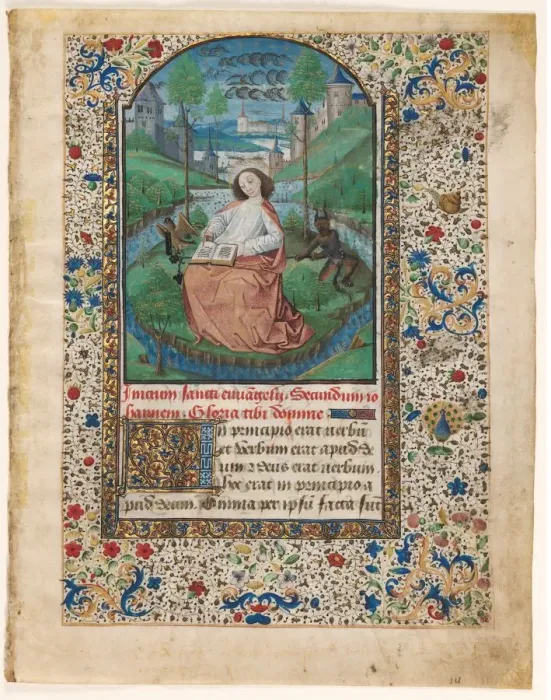 Inicium sancti euvãgelij. Secundum io
hannem. Gloria tibi domine
In principio erat verbũ
et verbum erat apud de
um ⁊ deus erat verbum.
hoc erat in principio a
pud deum. Omnia per ipsũ facta sũt